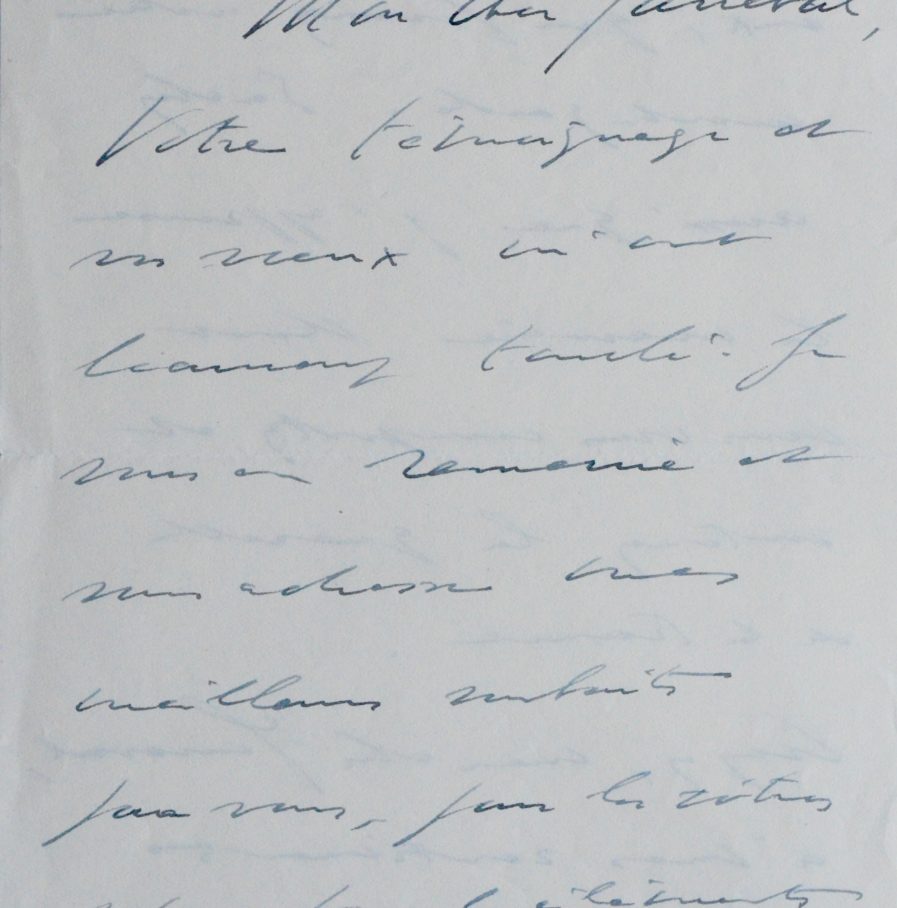 Mon cher Général,
Votre témoignage et
vos vœux m'ont
beaucoup touché. Je
vous en remercie et
vous adresse mes
meilleurs souhaits
pour vous, pour les vôtres
éléments